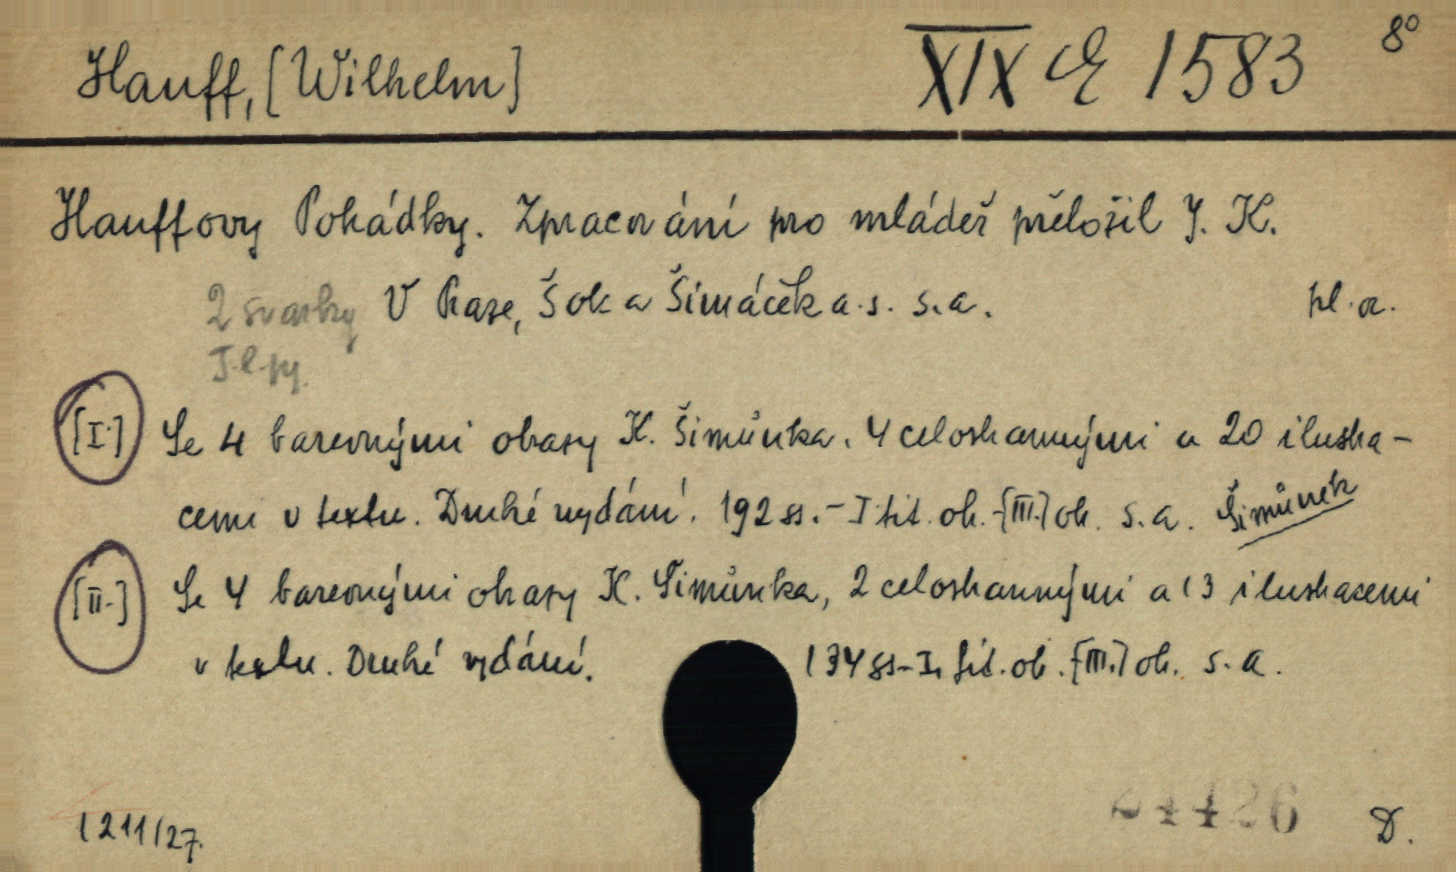 Hauff, [Wilhelm] XIX E 1583 8°
Hauffovy Pohádky. Zpracování pro mládež přeložil J. K.
2 svazky V Praze, Šolc a Šimáček a. s. s. a. pl. a.
[I.] Se 4 barevnými obrazy K. Šimůnka, 4 celostrannými a 20 ilustra-
cemi v textu. Druhé vydání. 192 ss. - I tit. ob. - [III.] ob. s. a. Šimůnek
[II.] Se 4 barevnými obrazy K. Šimůnka, 2 celostrannými a 13 ilustracemi
v textu. Druhé vydání. 134 ss - I, tit. ob. - [III.] ob. s. a.
1211/27. 24426 D.